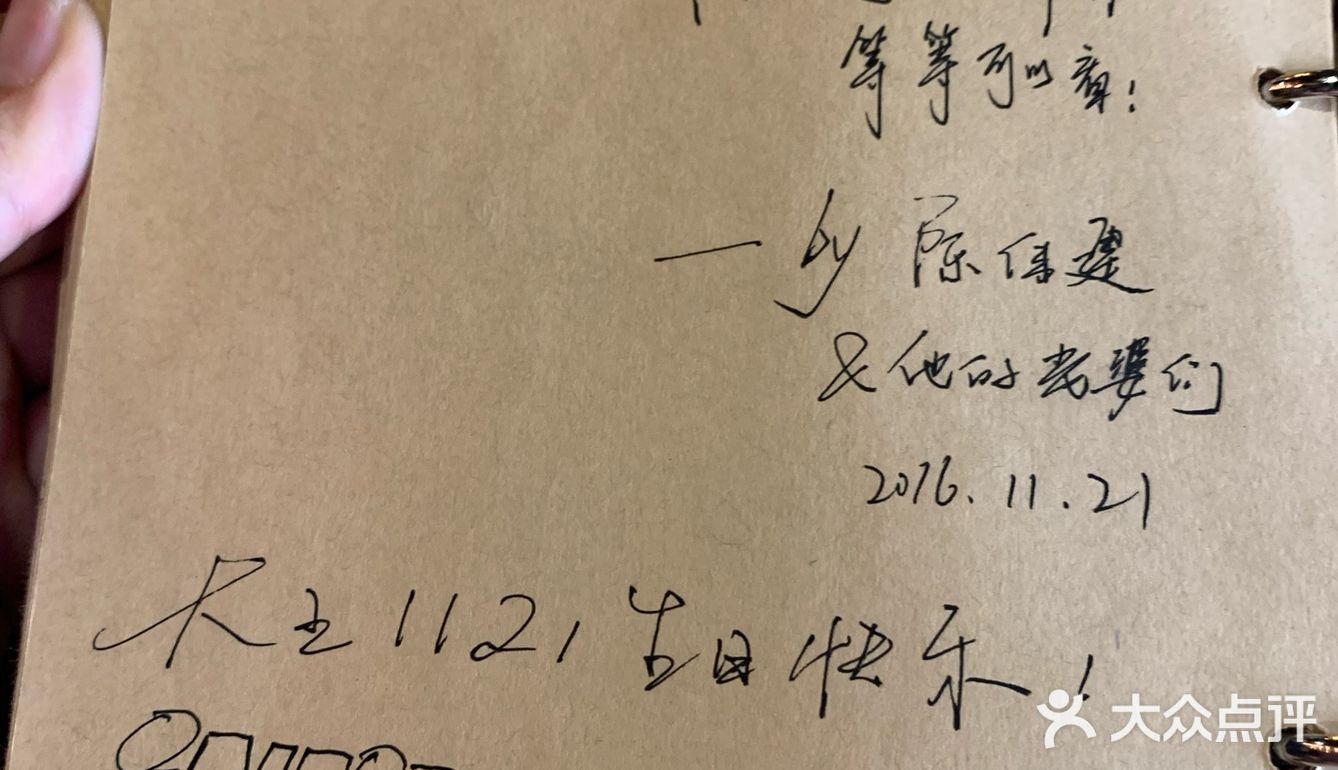 等等可以看！
— by 陈伟建
& 他的老婆们
2016.11.21
1121 生日快乐！
大众点评